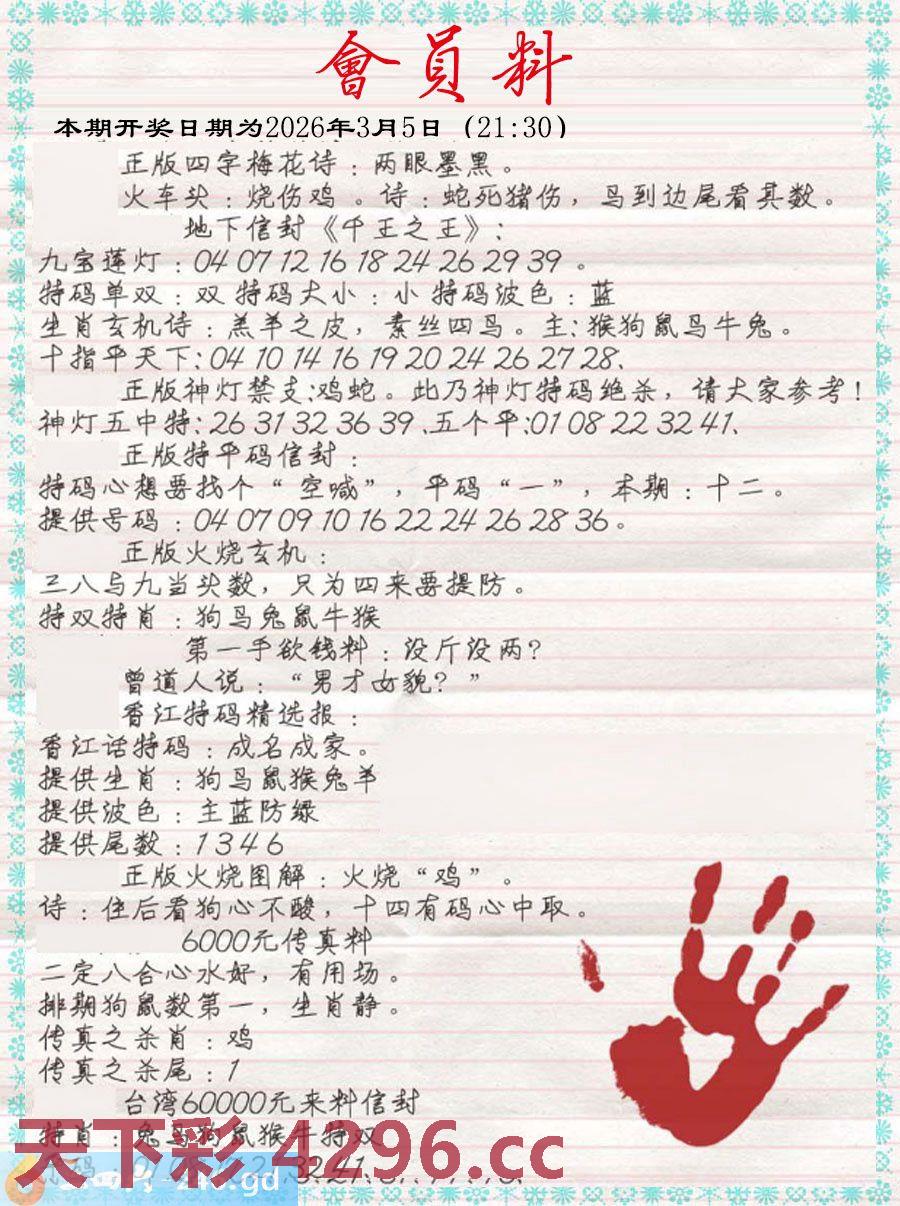 會員料
本期开奖日期为2026年3月5日（21:30）
正版四字梅花诗：两眼墨黑。
火车头：烧伤鸡。诗：蛇死猪伤，鸟到边尾看其数。
地下信封《千王之王》:
九宝莲灯：04 07 12 16 18 24 26 29 39 。
特码单双：双 特码大小：小 特码波色：蓝
生肖玄机诗：羔羊之皮，素丝四鸟。主:猴狗鼠鸟牛兔。
十指平天下:04 10 14 16 19 20 24 26 27 28.
正版神灯禁支:鸡蛇。此乃神灯特码绝杀，请大家参考！
神灯五中特:26 31 32 36 39 .五个平:01 08 22 32 41.
正版特平码信封：
特码心想要找个“空喊”，平码“一”，本期：十二。
提供号码：04 07 09 10 16 22 24 26 28 36。
正版火烧玄机：
三八与九当头数，只为四来要提防。
特双特肖：狗鸟兔鼠牛猴
第一手欲钱料：没斤没两？
曾道人说：“男才女貌？”
香江特码精选报：
香江话特码：成名成家。
提供生肖：狗鸟鼠猴兔羊
提供波色：主蓝防绿
提供尾数：1 3 4 6
正版火烧图解：火烧“鸡”。
诗：住后看狗心不酸，十四有码心中取。
6000元传真料
二定八合心水好，有用场。
排期狗鼠数第一，生肖静。
传真之杀肖：鸡
传真之杀尾：1
台湾60000元来料信封
特肖：兔鸟狗鼠猴牛特双
天下彩 4296.cc